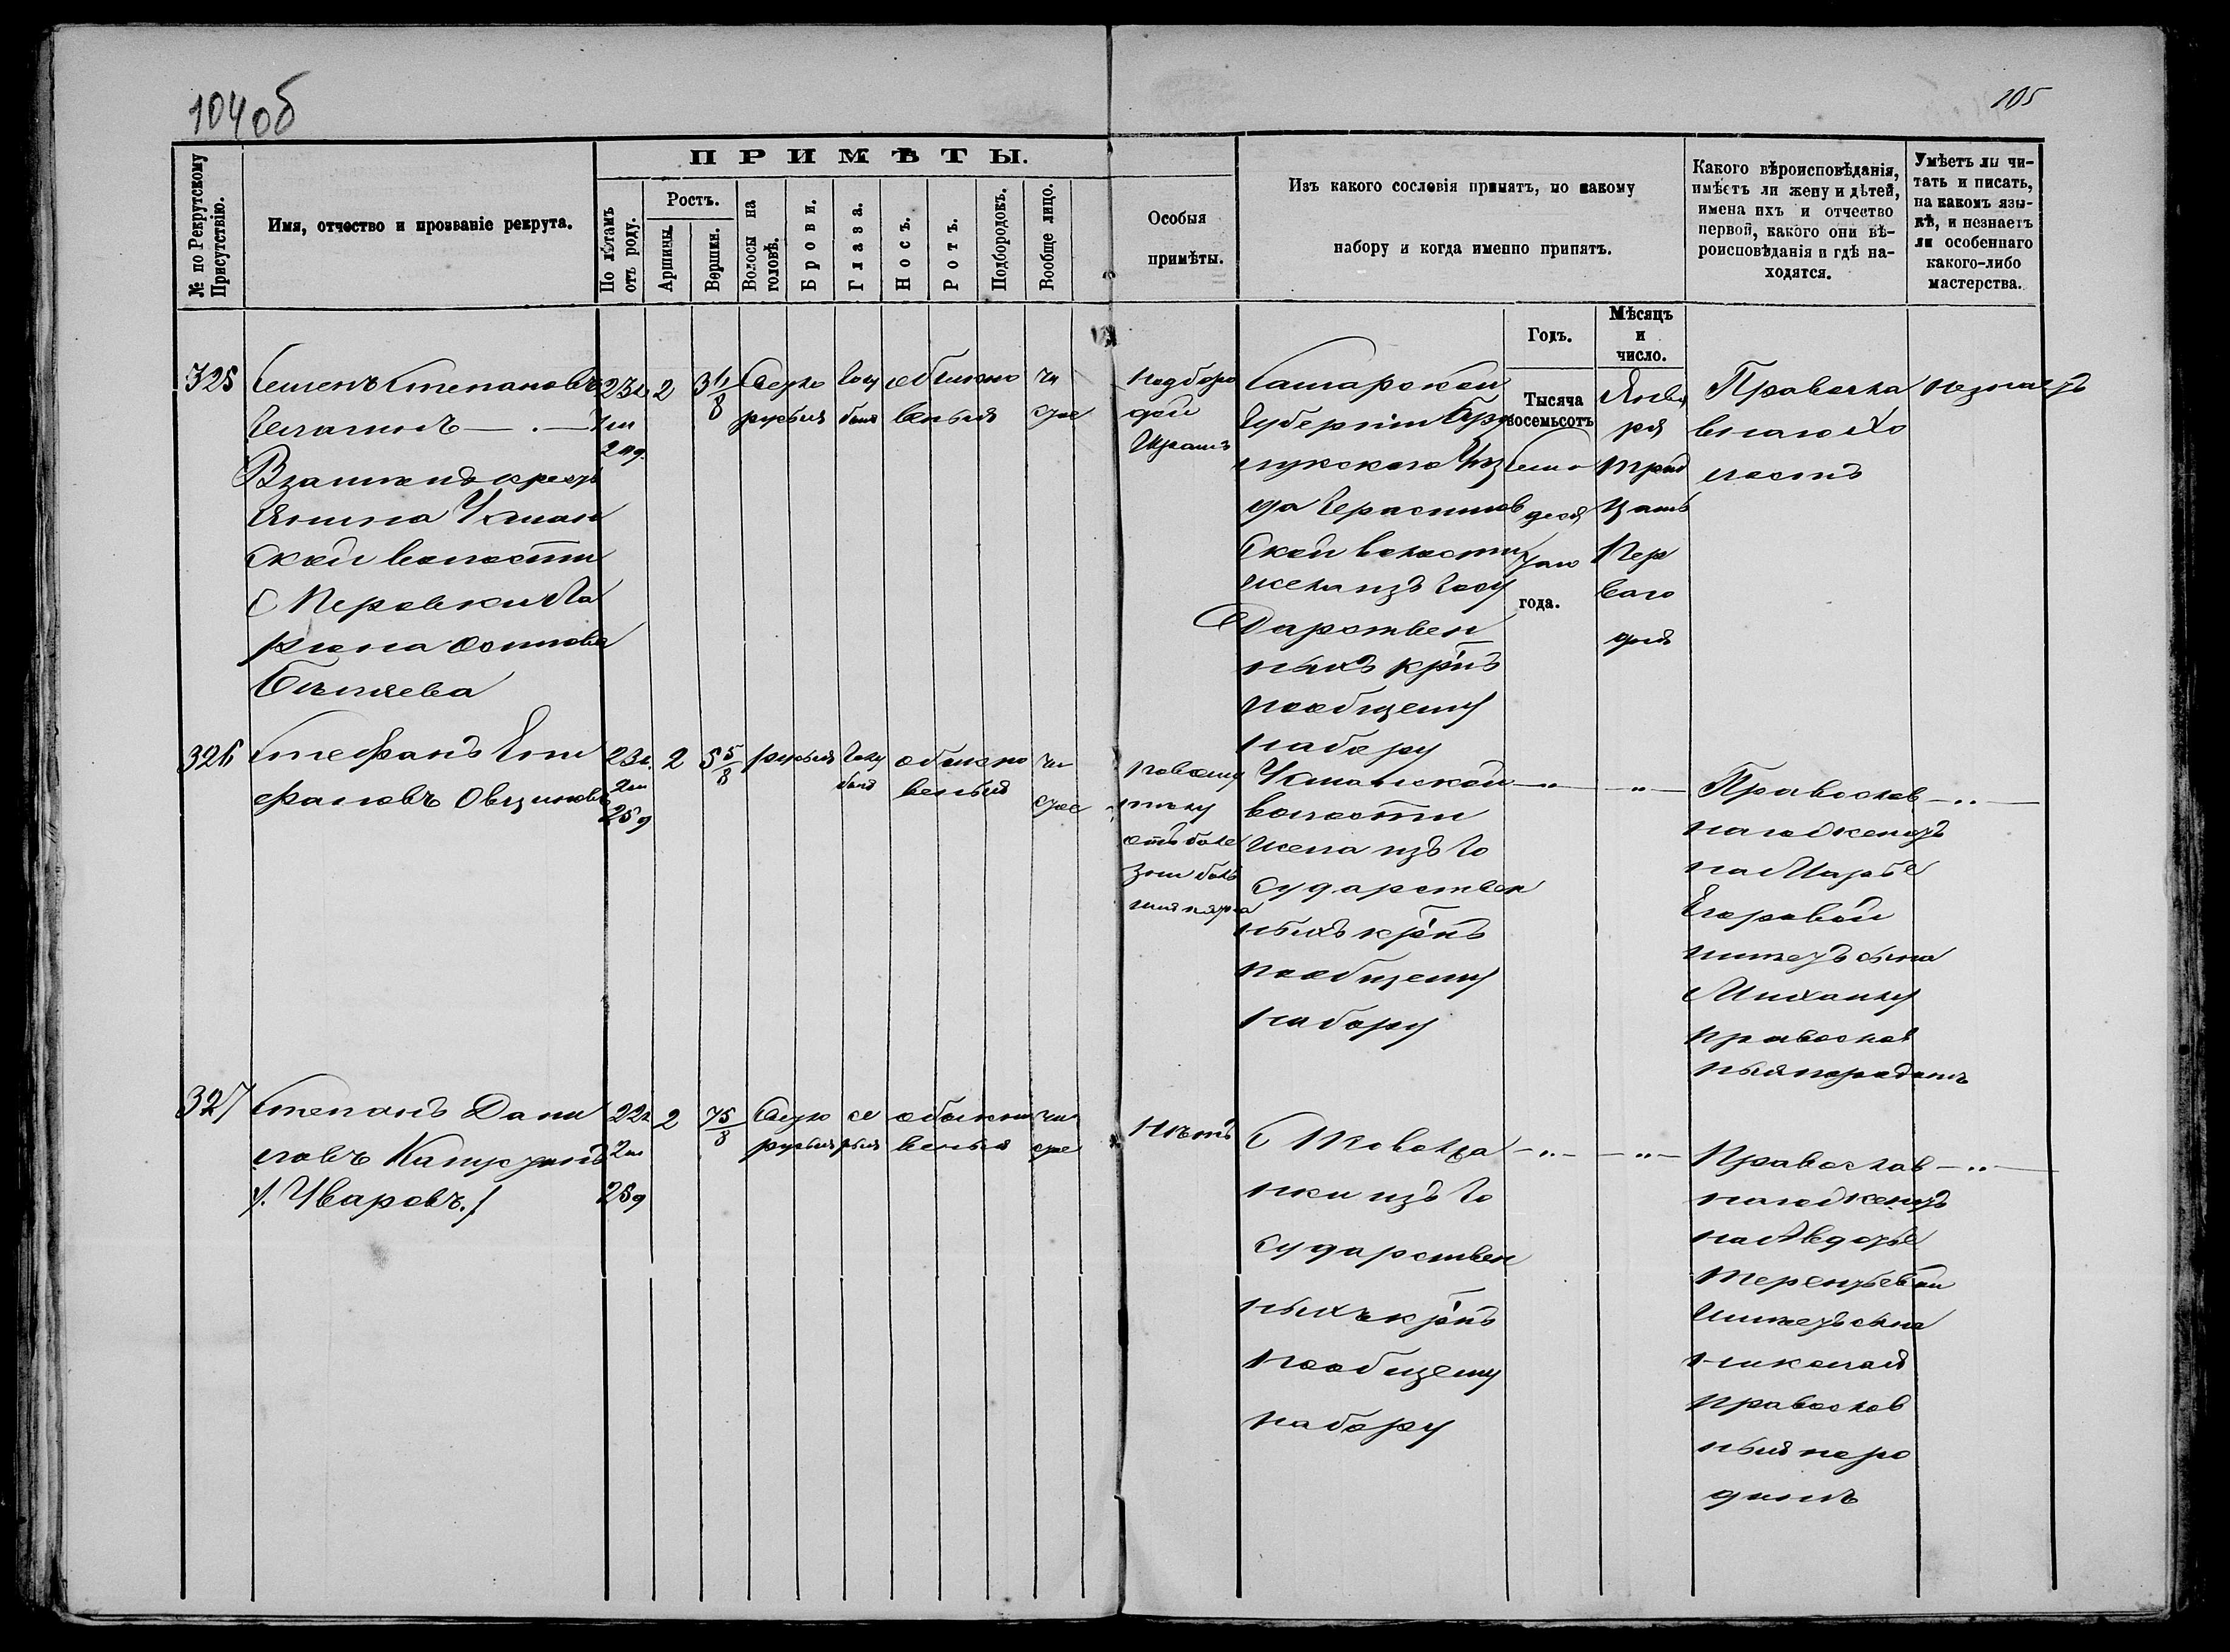 104об
105
№ по Рекрутскому Присутствію.
Имя, отчество и прозваніе рекрута.
ПРИМѢТЫ.
По лѣтамъ отъ роду.
Ростъ.
Аршины.
Вершки.
Волосы на головѣ.
Брови.
Глаза.
Носъ.
Ротъ.
Подбородокъ.
Вообще лицо.
Особыя
примѣты.
Изъ какого сословія принятъ, по какому
набору и когда именно принятъ.
Какого вѣроисповѣданія,
имѣетъ ли жену и дѣтей,
имена ихъ и отчество
первой, какого они вѣ-
роисповѣданія и гдѣ на-
ходятся.
Умѣетъ ли чи-
тать и писать,
на какомъ язы-
кѣ, и незнаетъ
ли особеннаго
какого-либо
мастерства.
Годъ.
Мѣсяцъ
и
число.
325
Семенъ Степановъ
Взаменъ кресть
янина Уман
ской волости
С Перовки Ла
риона Осипова
23л
2
Свѣтло
русыя
голу
быя
обыкно
веныя
чи
стое
подборо
дой
Шрамъ
Самарской
Губерніи Бузу
лукского Уѣз
да Герасимов
ской волости
села изъ Госу
Дарствен
ныхъ кр̃нъ
пообщему
набору
Тысяча
восемьсотъ
Семь
деся
таго
года.
Янва
ря
трид
цать
Пер
ваго
дня
Правосла
внаго Хо
лостъ
незнаетъ
326
Стефанъ Епи
фановъ Овчиновъ
23л.
2м
25д
2
5 5/8
русыя
голу
быя
обыкно
веныя
чи
стое
повсему
телу
отъ боле
зни боль
шия пятна
Уманской
волости
села изъ Го
сударствен
ныхъ кр̃нъ
пообщему
набору
Православ
наго женатъ
на Марье
Егоровой
имеетъ сына
Михаилу
православ
ныя на родине
327
Степанъ Дани
ловъ Капустинъ
/. Уваровъ ./
22л
2м
25д
2
7 5/8
Свѣтло
русыя
се
рыя
обыкно
веныя
чи
стое
Нѣтъ
изъ Го
сударствен
ныхъ кр̃нъ
пообщему
набору
Православ
наго женатъ
на Авдотье
Терентьевой
Имеетъ сына
Николая
православ